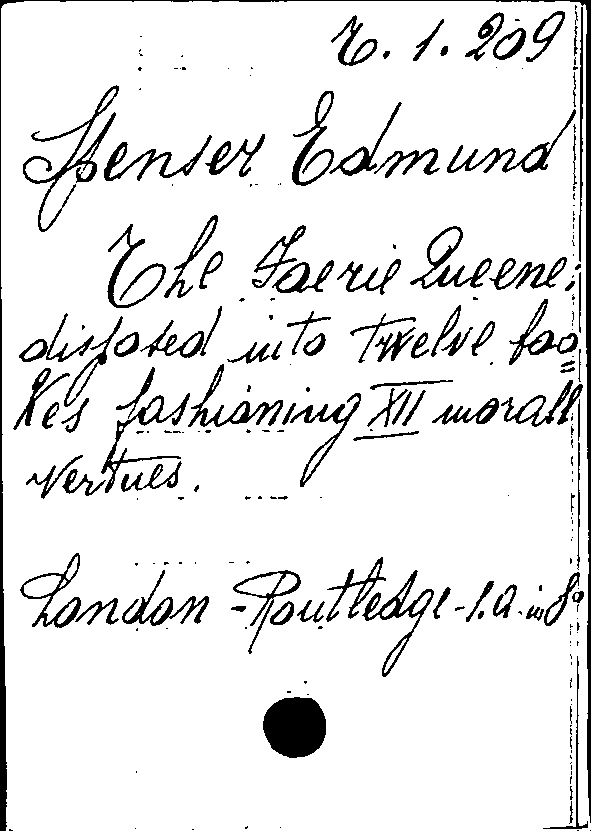 T. 1. 209
Spenser Edmund
The Faerie Queene:
disposed into twelve boo=
kes fashioning XII morall
vertues.
London - Routledge - s.a. in 8°